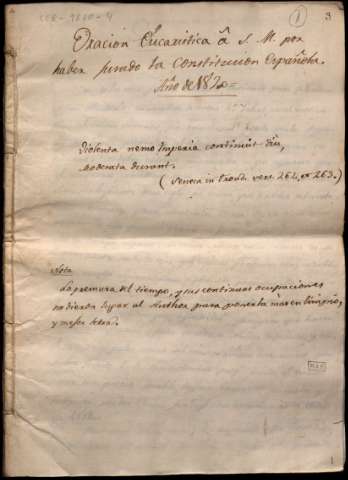 1
3
Oracion Eucaristica â S. M. por
haber jurado la Constitucion Española.
Año de 1820=
Violenta nemo Imperia continuit diu,
moderata durant.
(Seneca in Troad. vers. 262, et 263.)
Nota
La premura del tiempo, y sus continuas ocupaciones
no dieron lugar al Author para ponerla mas en limpio,
y mejor letra.
1